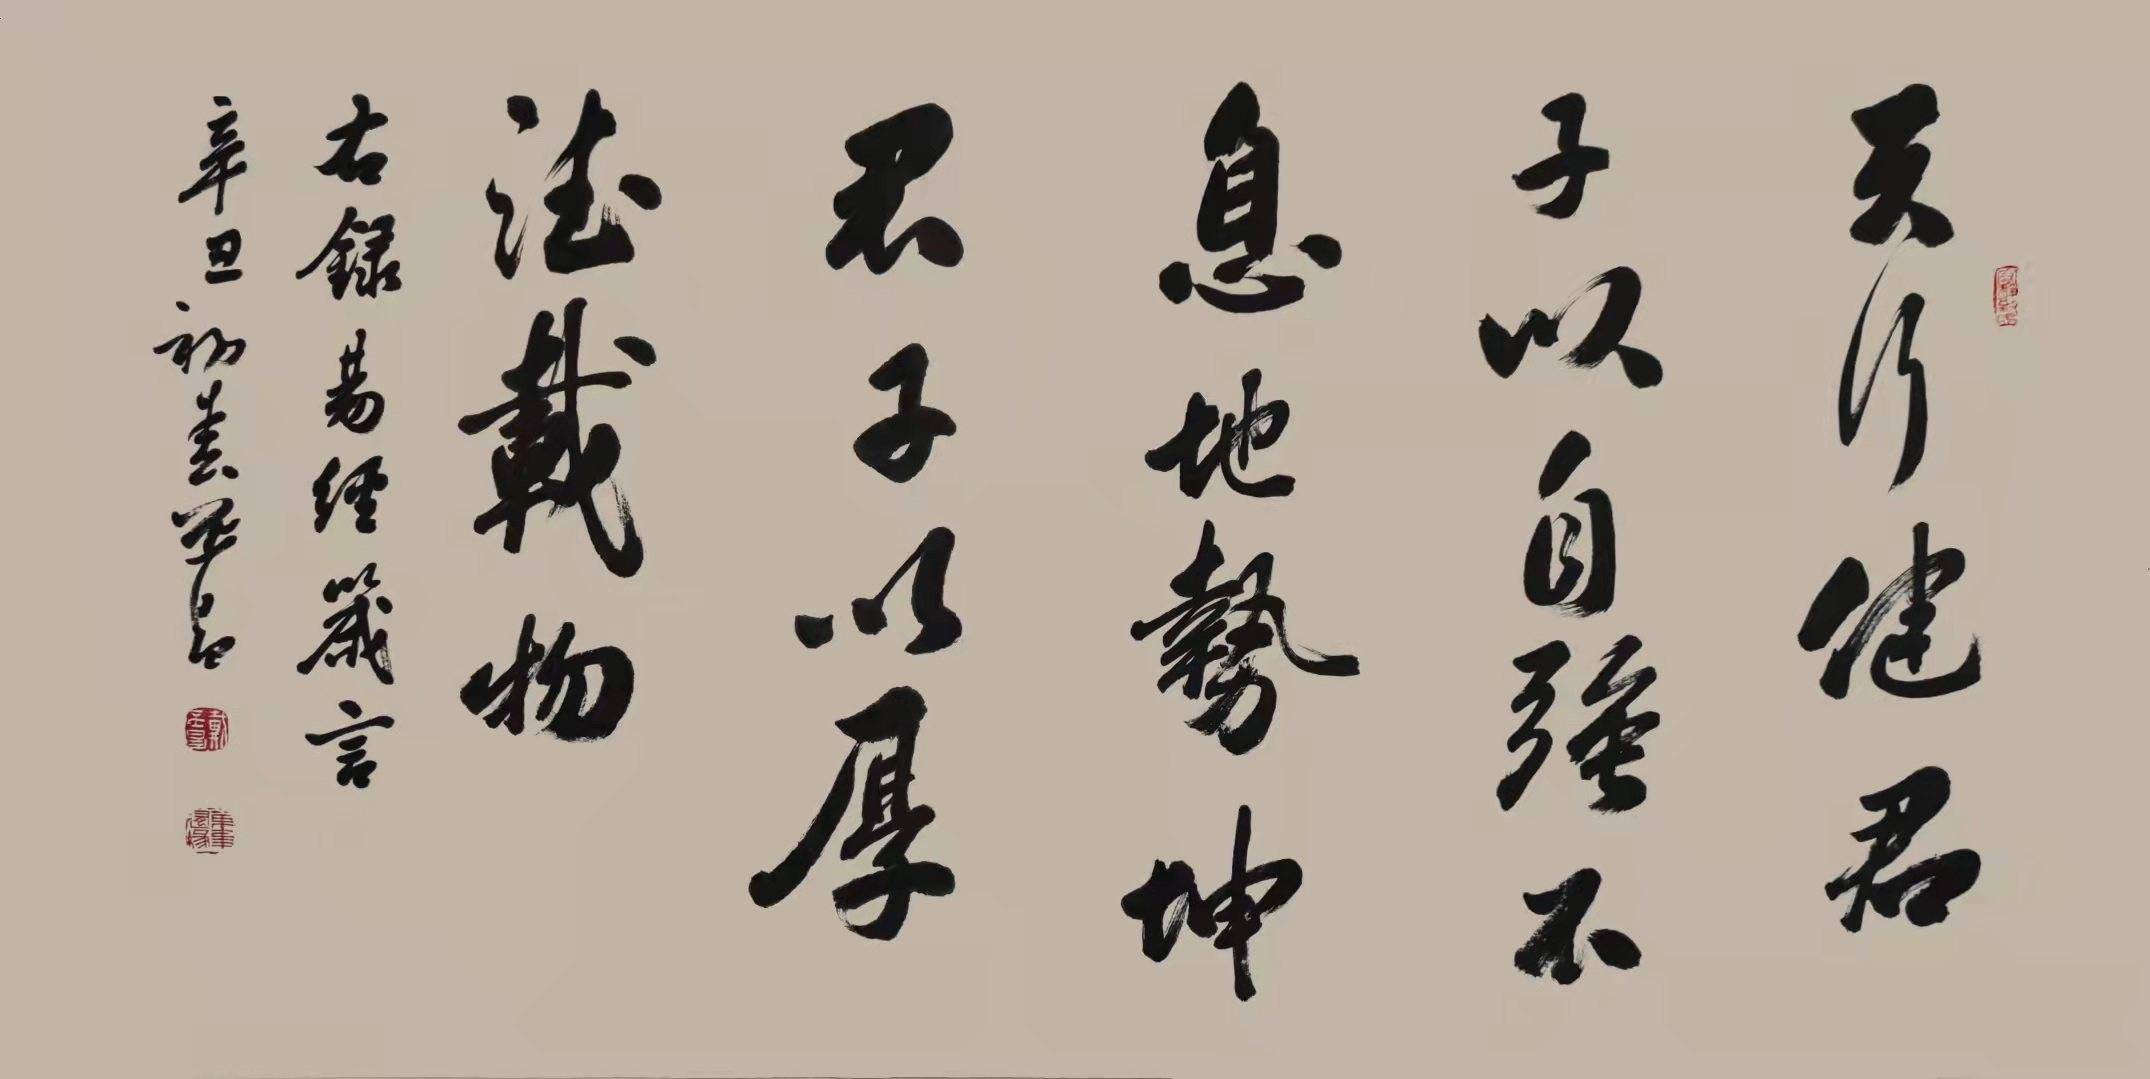 天行健君
子以自強不
息地勢坤
君子以厚
德載物
右錄易經箴言
辛丑初春華昌